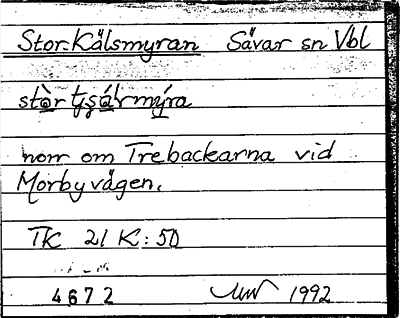 Stor-Kälsmyran Sävar sn Vbl
norr om Trebackarna vid
Morbyvägen.
TK 21 K:50
4672 1992